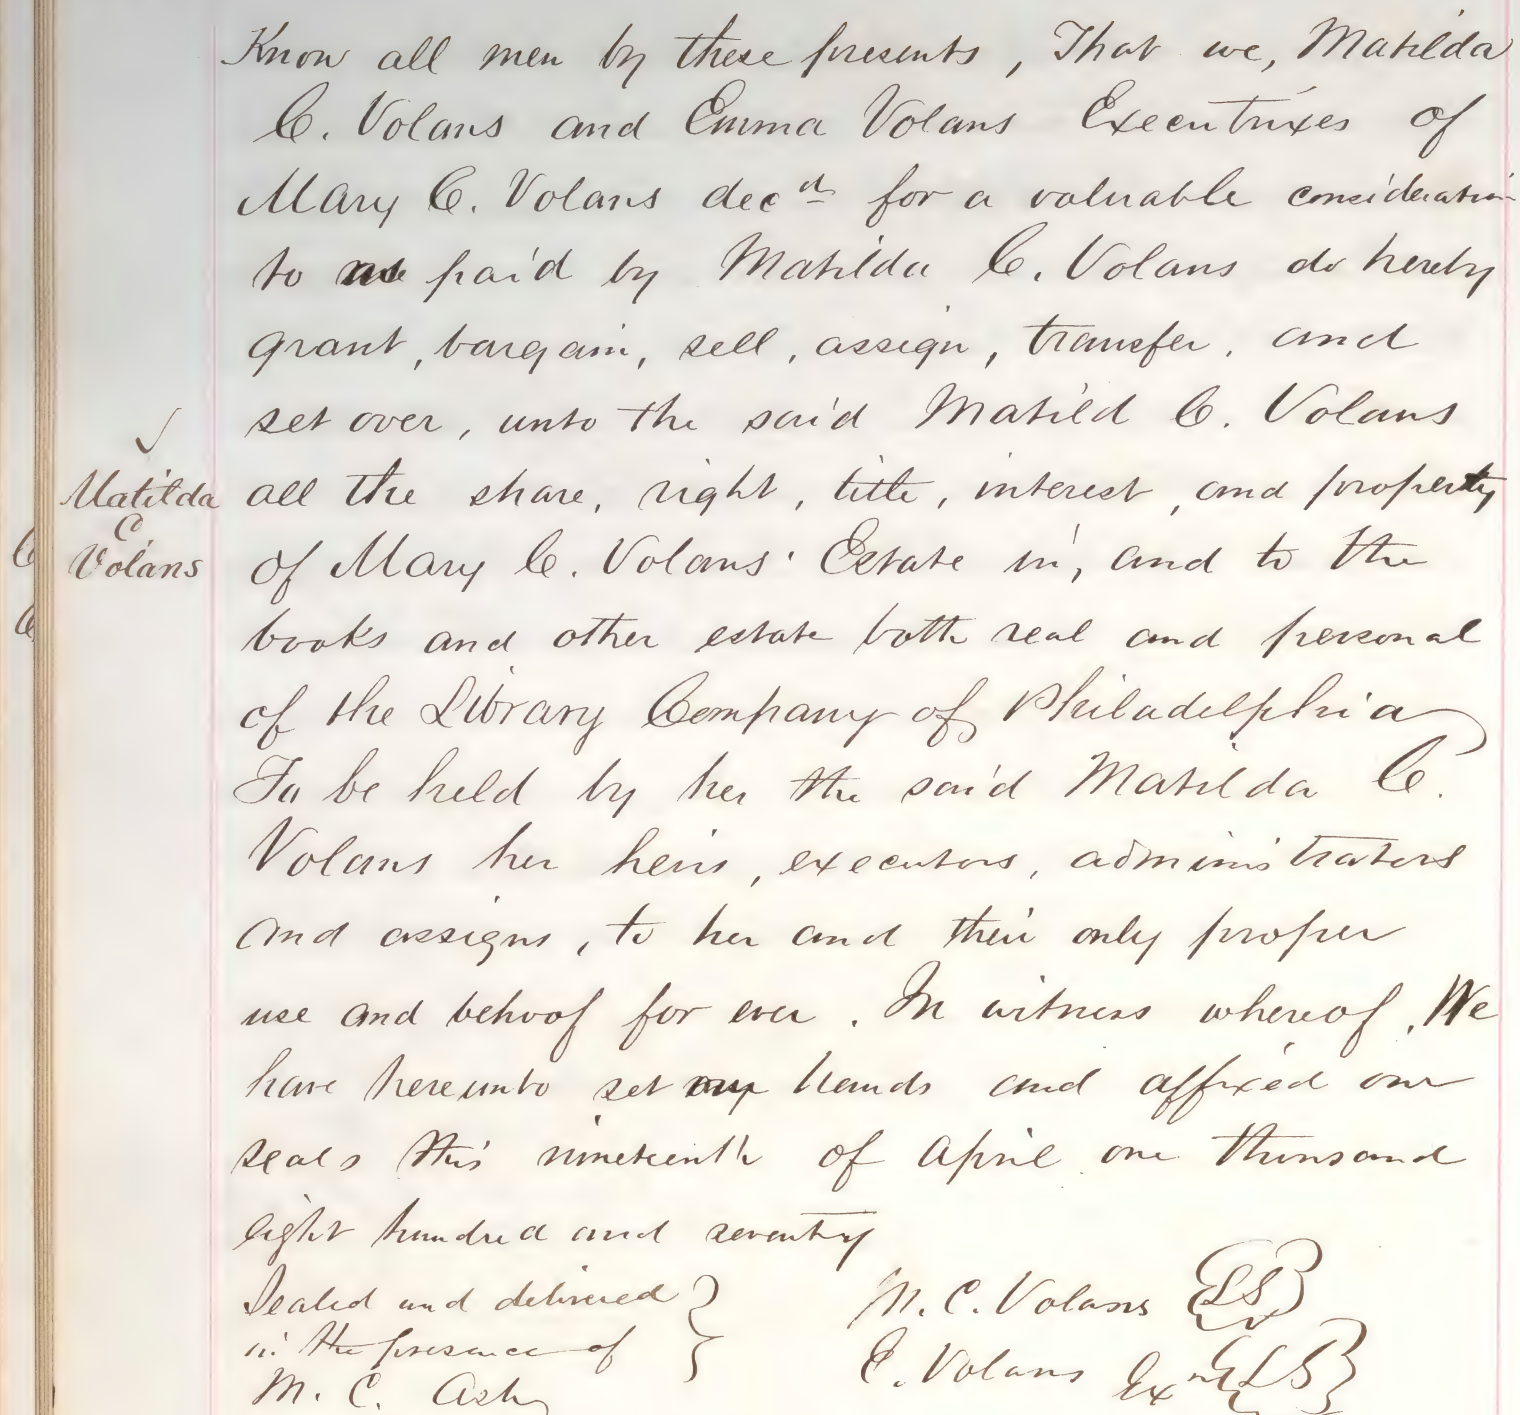 Know all men by these presents, That we, Matilda
C. Volans and Emma Volans Executrixes of
Mary C. Volans decd for a valuable consideration
to us paid by Matilda C. Volans do hereby
grant, bargain, sell, assign, transfer, and
set over, unto the said Matild C. Volans
all the share, right, title, interest, and property
of Mary C. Volans' Estate in, and to the
books and other estate both real and personal
of the Library Company of Philadelphia
To be held by her the said Matilda C.
Volans her heirs, executors, administrators
and assigns, to her and their only proper
use and behoof for ever. In witness whereof, We
have hereunto set our hands and affixed our
seals this nineteenth of April one thousand
eight hundred and seventy
Sealed and delivered
in the presence of
M. C. Ash
M. C. Volans {LS}
E. Volans Exrs {LS}
✓
Matilda
C.
Volans